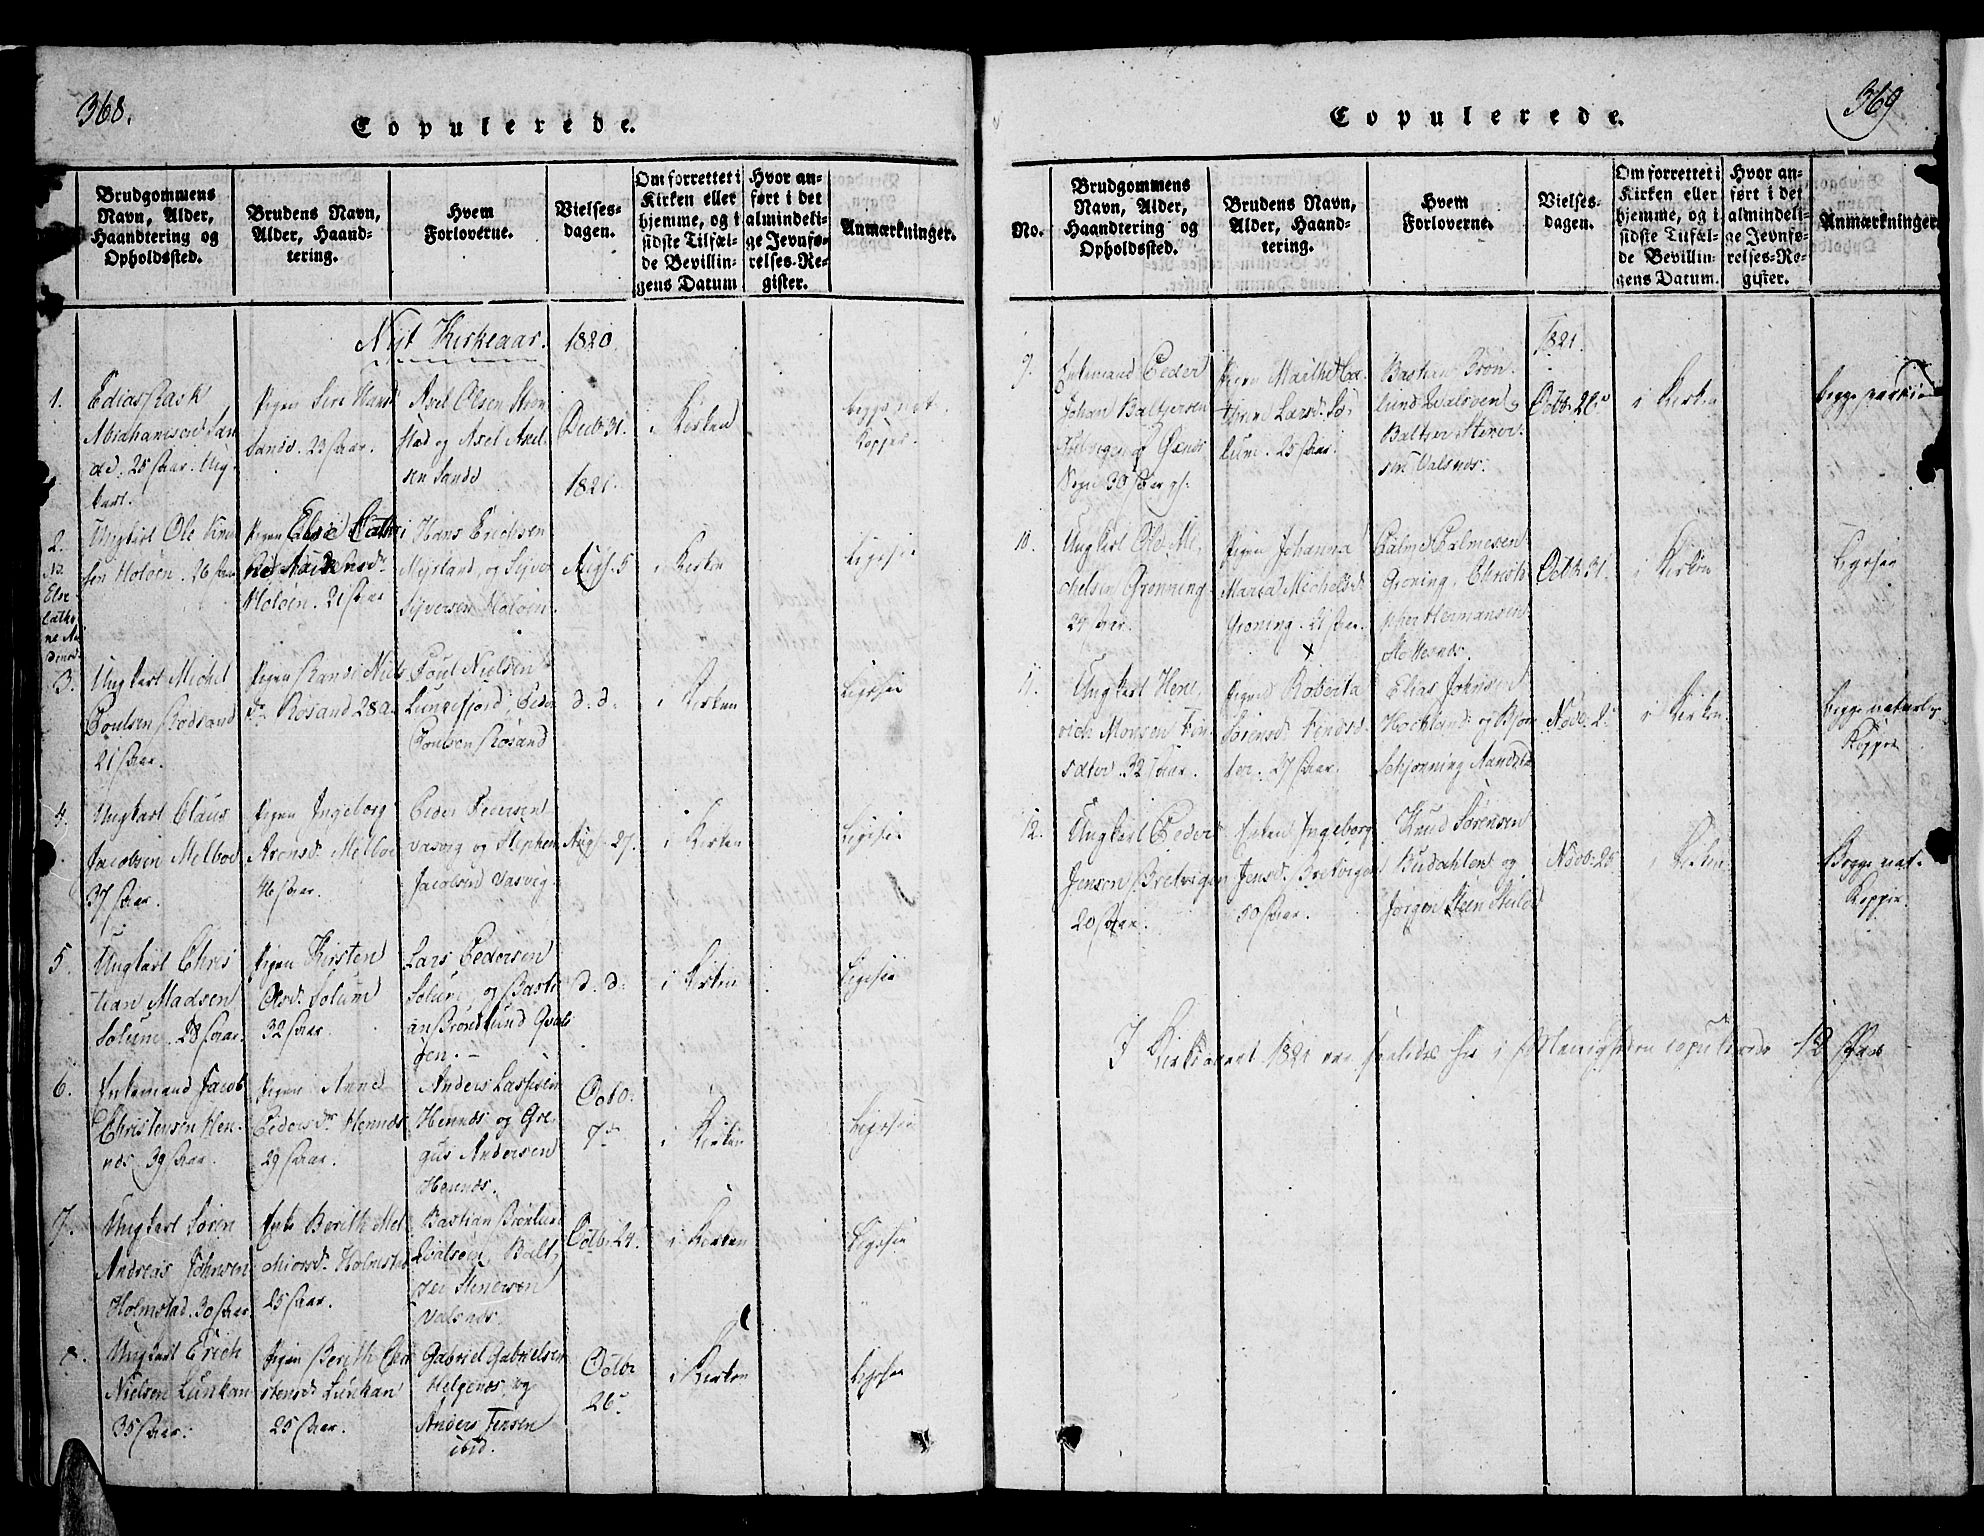 368.
Copulerede.
Brudgommens
Navn, Alder,
Haandtering og
Opholdssted.
Brudens Navn,
Alder, Haand-
tering.
Hvem
Forloverne.
Vielses-
dagen.
Om forrettet i
Kirken eller
hjemme, og i
sidste Tilfæl-
de Bevillin-
gens Datum
Hvor an-
ført i det
almindeli-
ge Jevnfø-
relses-Re-
gister.
Anmærkninger.
Nyt Kirkeaar. 1820.
1.
Abrahamsen
25 Aar. Ung-
karl.
Pigen Siri Hans
23 Aar.
Axel Olsen
og Axel Axel-
sen Sande
Decbr 31.
1821.
i Kirken
begge nat.
Kopper
2.
NB.
Else
Cathr
ne
Ungkarl Ole
sen Holoen. 26 Aar
Pigen Else Cathri
Holoen. 21 Aar
Hans Erichsen
og Sifver
Sifversen Holoen.
Augs. 5
i Kirken
Ligesaa
3.
Ungkarl Michel
Poulsen Rodsand
21 Aar.
Pigen Randi Niels
dr Rosand 28 a.
Poul Nielsen
Lungefjord, Peder
Poulsen Rosand
d. d.
i Kirken
Ligesaa
4.
Ungkarl Claus
Jacobsen Melboe
37 Aar.
Pigen Ingeborg
Aronsdr Melboe
46 Aar.
Peder Pedersen
Vasvig og Stephen
Jacobsen Vasvig
Augs. 27.
i Kirken
Ligesaa
5.
Ungkarl Chris
tian Madsen
Solum. 28 Aar.
Pigen Kirsten
Olsdr Solum
32 Aar
Lars Pedersen
Solum, og Basti
an Brønlund Qval
sen.
d. d.
i Kirken
Ligesaa
6.
Enkemand Jacob
Christensen Hen-
næs 39 Aar
Pigen Anne
Pedersdr Hennæs
29 Aar.
Anders
Hennæs og Gre-
gus Andersen
Hennæs.
Octb.
7de
i Kirken
Ligesaa
7.
Ungkarl Søren
Andreas Johnsen
Holmstad. 30 Aar
Enke Berith Mel
chiorsdr Holmstad
25 Aar.
Bastian Brønlund
Qvalsen, Balt
zer Stenersen
Valsnæs.
Octb. 24.
i Kirken
Ligesaa
8.
Ungkarl Erich
Nielsen Lunkan
35 Aar.
Pigen Berith Chri
stensdr Lunkan
25 Aar.
Gabriel Gabrielsen
Helgenæs, og
Anders Jensen
ibid.
Octbr
26.
i Kirken
Ligesaa
369
Copulerede.
No.
Brudgommens
Navn, Alder,
Haandtering og
Opholdssted.
Brudens Navn,
Alder, Haand-
tering.
Hvem
Forloverne.
Vielses-
dagen.
Om forrettet i
Kirken eller
hjemme, og i
sidste Tilfæl-
de Bevillin-
gens Datum.
Hvor an-
ført i det
almindeli-
ge Jevnfø-
relses-Re-
gister.
Anmærkninger.
1821.
9.
Enkemand Peder
Johan Baltzersen
af Øxnæs
Sogn 30 Aar gl.
Pigen Marthe Ca-
thrine Larsdr So-
lum. 25 Aar.
Bastian Brøn-
lund Qvalsen,
Baltzer Stener-
sen Valsnæs.
Octbr 26
i Kirken
begge
10.
Ungkarl Ole Mi-
chelsen Grønning
24 Aar.
Pigen Johanna
Maria Michelsdr
Groning. 21 Aar.
Palme Palmesen
Groning, Christo
pher Hermansen
Octbr 31.
i Kirken
Ligesaa
11.
Ungkarl Hen-
rich Monsen Fin-
sæter. 32 Aar.
Pigen Roberta
Sørensdr Findsæ-
ter. 27 Aar.
Elias Johnsen
Hockland og
Schjønning
Novbr 2
i Kirken
begge naturlig
Kopper
12.
Ungkarl Peder
Jensen Bretvigen
20 Aar.
Enken Ingeborg
Jensdr Bretvigen
50 Aar.
Knud Sørensen
Budahlen og
Jørgen Steen
Novb. 25
i Kirken
Begge nat.
Kopper.
I Kirkeaaret 1821 var saaledes her i Menigheden copulerede 12 Par